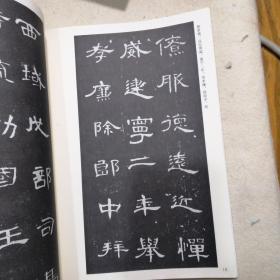 僚服德遠近憚
威建寧二年舉
孝廉除郎中拜
西域戊部司
國王